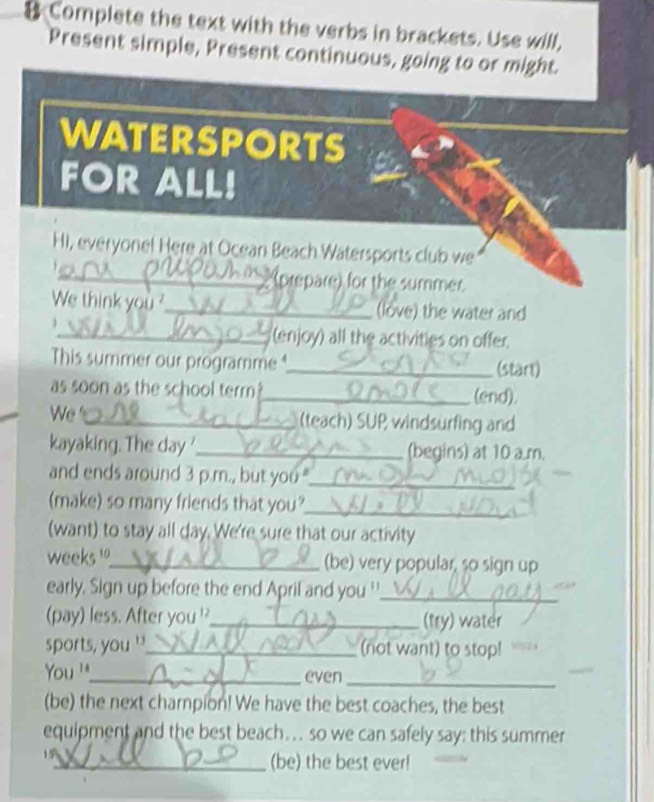 8 Complete the text with the verbs in brackets. Use will,
Present simple, Present continuous, going to or might.
WATERSPORTS
FOR ALL!
Hi, everyone! Here at Ocean Beach Watersports club we
1 (prepare) for the summer.
We think you 2 will (love) the water and
3 will enjoy (enjoy) all the activities on offer.
This summer our programme 4 (start)
as soon as the school term 5 (end).
We 6 teach (teach) SUP, windsurfing and
kayaking. The day 7 begins (begins) at 10 a.m.
and ends around 3 p.m., but you 8
(make) so many friends that you 9 will want
(want) to stay all day. We're sure that our activity
weeks 10 will be (be) very popular, so sign up
early. Sign up before the end April and you 11 will pay
(pay) less. After you 12 (try) water
sports, you 13 will not (not want) to stop!
You 14 might even be
(be) the next champion! We have the best coaches, the best
equipment and the best beach... so we can safely say: this summer
15 will be (be) the best ever!